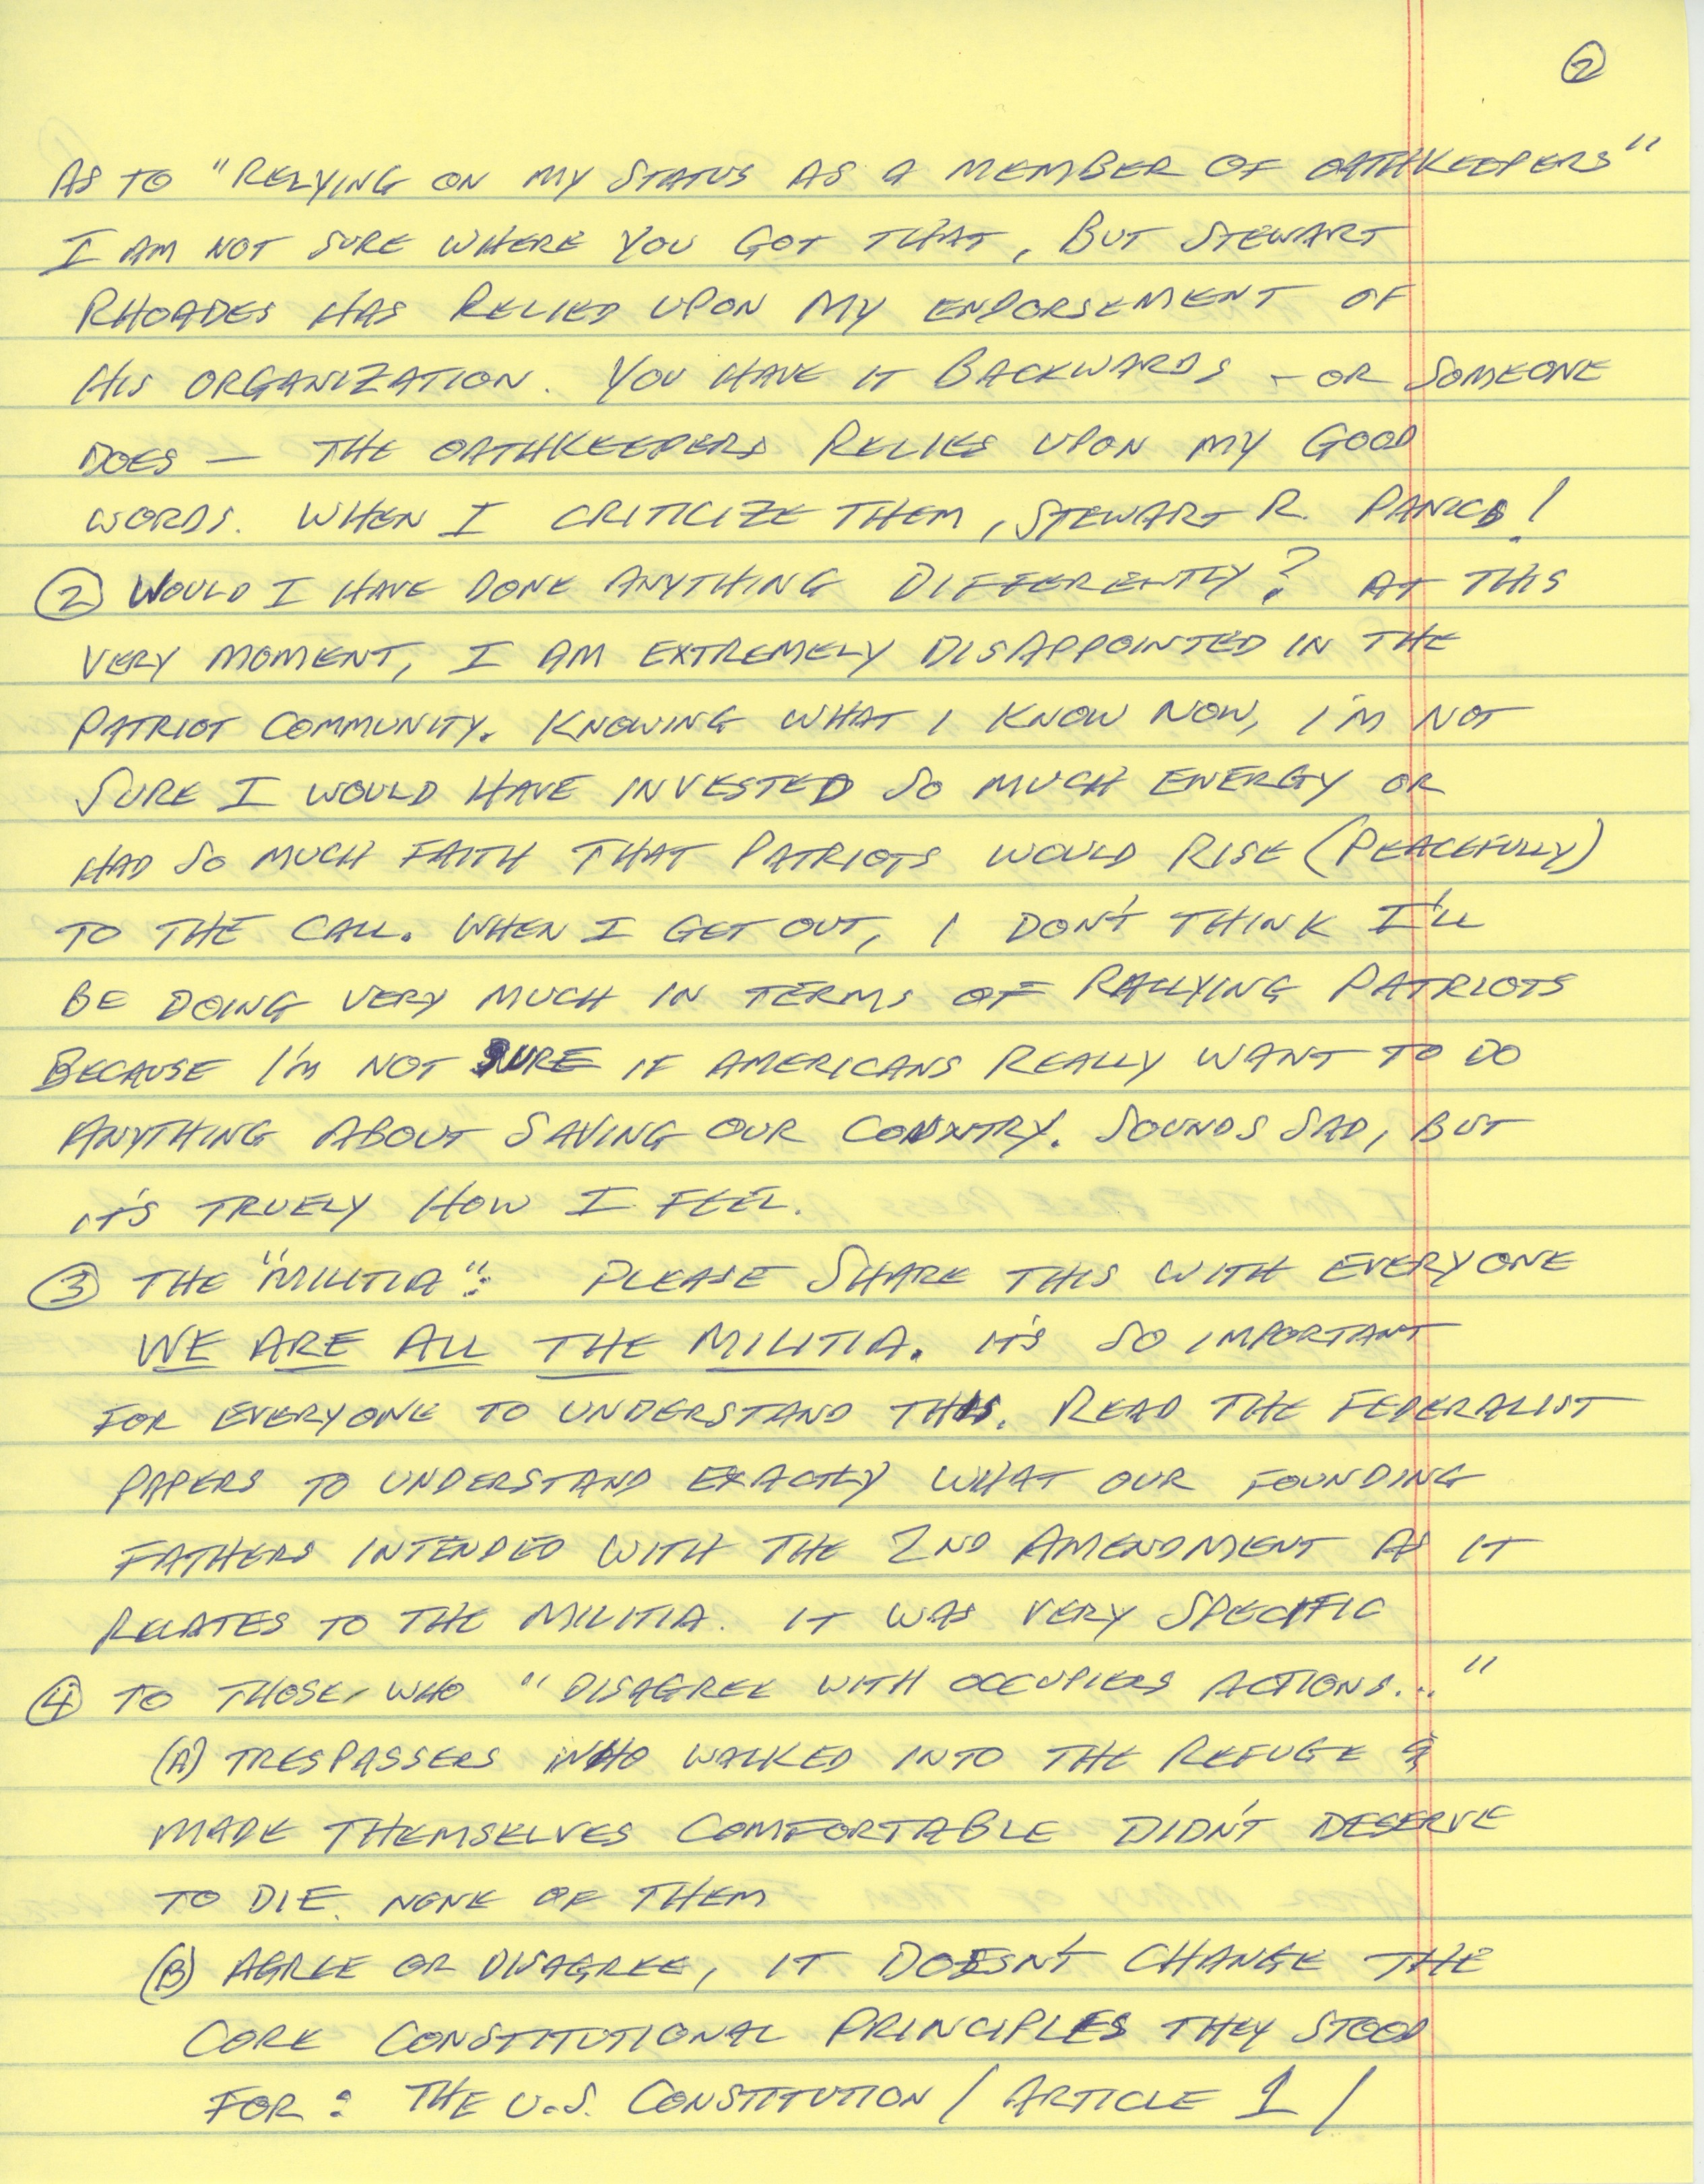 ②
AS TO "RELYING ON MY STATUS AS A MEMBER OF OATHKEEPERS"
I AM NOT SURE WHERE YOU GOT THAT, BUT STEWART
RHOADES HAS RELIED UPON MY ENDORSEMENT OF
HIS ORGANIZATION. YOU HAVE IT BACKWARDS - OR SOMEONE
DOES — THE OATHKEEPERS RELIES UPON MY GOOD
WORDS. WHEN I CRITICIZE THEM, STEWART R. PANICS!
② WOULD I HAVE DONE ANYTHING DIFFERENTLY? AT THIS
VERY MOMENT, I AM EXTREMELY DISAPPOINTED IN THE
PATRIOT COMMUNITY. KNOWING WHAT I KNOW NOW, I'M NOT
SURE I WOULD HAVE INVESTED SO MUCH ENERGY OR
HAD SO MUCH FAITH THAT PATRIOTS WOULD RISE (PEACEFULLY)
TO THE CALL. WHEN I GET OUT, I DON'T THINK I'LL
BE DOING VERY MUCH IN TERMS OF RALLYING PATRIOTS
BECAUSE I'M NOT SURE IF AMERICANS REALLY WANT TO DO
ANYTHING ABOUT SAVING OUR COUNTRY. SOUNDS SAD, BUT
IT'S TRUELY HOW I FEEL.
③ THE "MILITIA": PLEASE SHARE THIS WITH EVERYONE
WE ARE ALL THE MILITIA. IT'S SO IMPORTANT
FOR EVERYONE TO UNDERSTAND THIS. READ THE FEDERALIST
PAPERS TO UNDERSTAND EXACTLY WHAT OUR FOUNDING
FATHERS INTENDED WITH THE 2ND AMENDMENT AS IT
RELATES TO THE MILITIA. IT WAS VERY SPECIFIC
④ TO THOSE WHO "DISAGREE WITH OCCUPIERS ACTIONS..."
(A) TRESPASSERS WHO WALKED INTO THE REFUGE &
MADE THEMSELVES COMFORTABLE DIDN'T DESERVE
TO DIE. NONE OF THEM
(B) AGREE OR DISAGREE, IT DOESN'T CHANGE THE
CORE CONSTITUTIONAL PRINCIPLES THEY STOOD
FOR: THE U.S. CONSTITUTION / ARTICLE 1 /